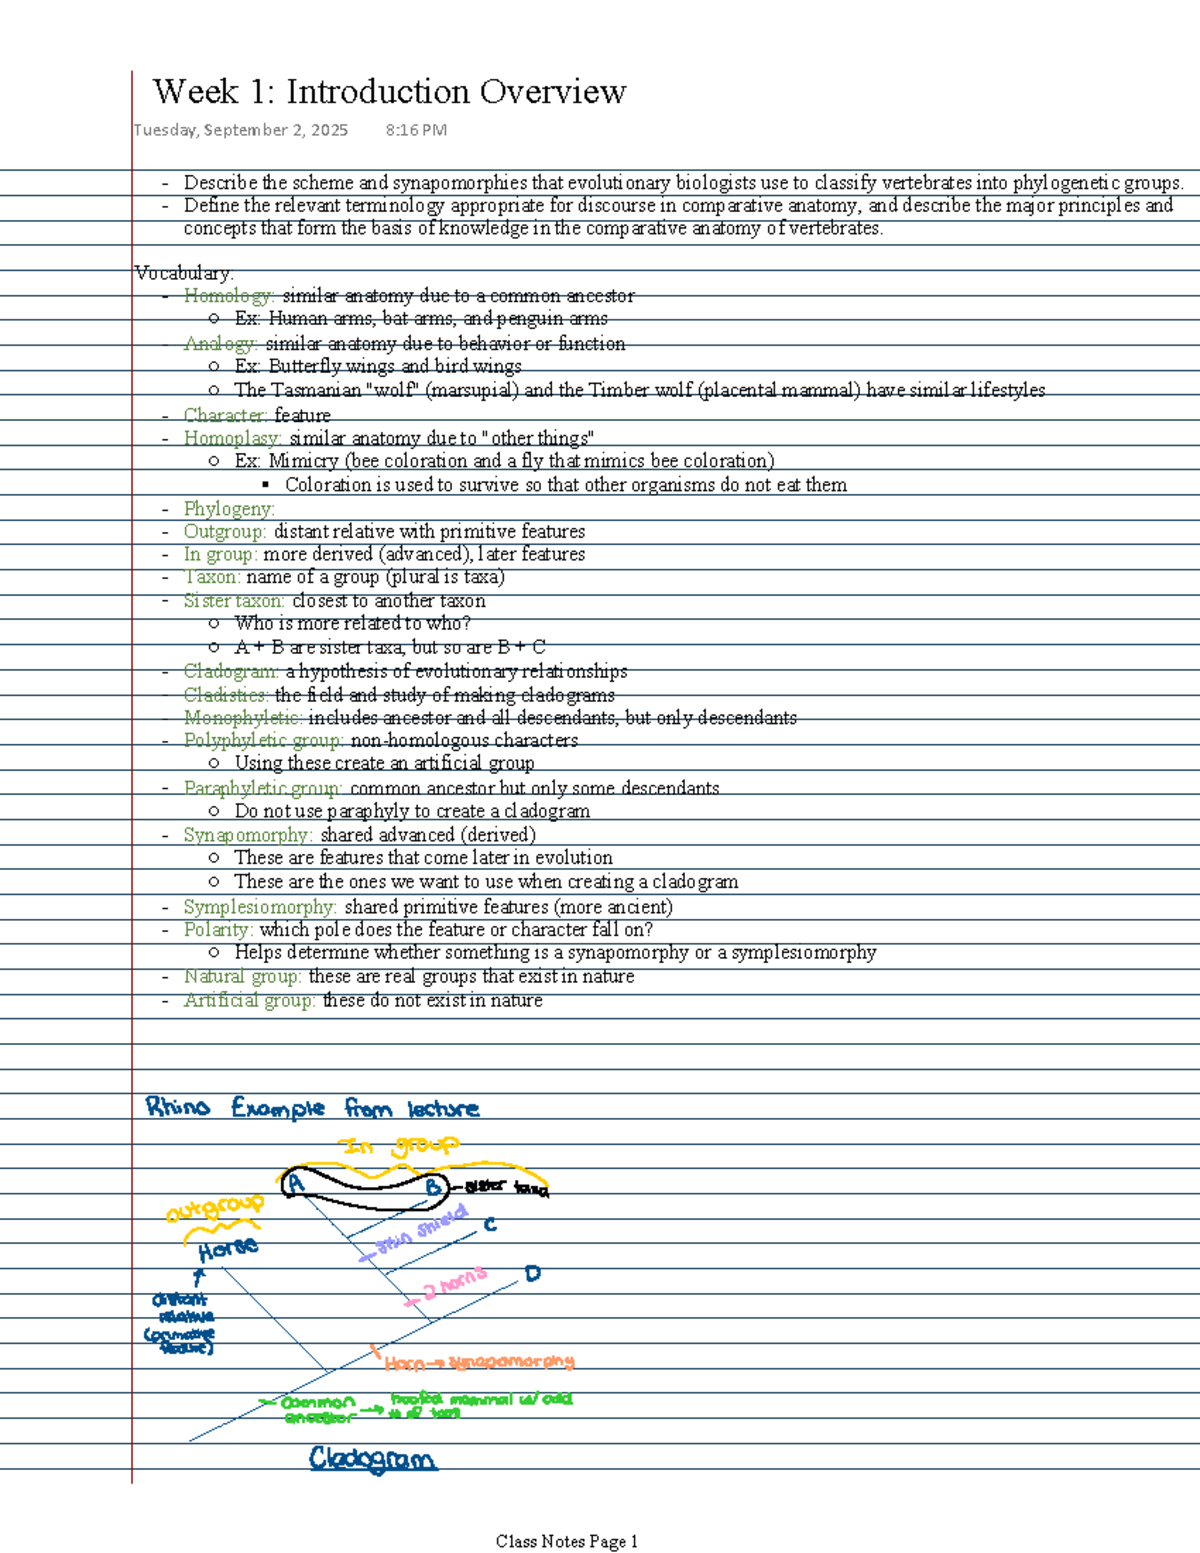 Week 1: Introduction Overview
Tuesday, September 2, 2025 8:16 PM
- Describe the scheme and synapomorphies that evolutionary biologists use to classify vertebrates into phylogenetic groups.
- Define the relevant terminology appropriate for discourse in comparative anatomy, and describe the major principles and
concepts that form the basis of knowledge in the comparative anatomy of vertebrates.
Vocabulary:
- Homology: similar anatomy due to a common ancestor
○ Ex: Human arms, bat arms, and penguin arms
- Analogy: similar anatomy due to behavior or function
○ Ex: Butterfly wings and bird wings
○ The Tasmanian "wolf" (marsupial) and the Timber wolf (placental mammal) have similar lifestyles
- Character: feature
- Homoplasy: similar anatomy due to "other things"
○ Ex: Mimicry (bee coloration and a fly that mimics bee coloration)
▪ Coloration is used to survive so that other organisms do not eat them
- Phylogeny:
- Outgroup: distant relative with primitive features
- In group: more derived (advanced), later features
- Taxon: name of a group (plural is taxa)
- Sister taxon: closest to another taxon
○ Who is more related to who?
○ A + B are sister taxa, but so are B + C
- Cladogram: a hypothesis of evolutionary relationships
- Cladistics: the field and study of making cladograms
- Monophyletic: includes ancestor and all descendants, but only descendants
- Polyphyletic group: non-homologous characters
○ Using these create an artificial group
- Paraphyletic group: common ancestor but only some descendants
○ Do not use paraphyly to create a cladogram
- Synapomorphy: shared advanced (derived)
○ These are features that come later in evolution
○ These are the ones we want to use when creating a cladogram
- Symplesiomorphy: shared primitive features (more ancient)
- Polarity: which pole does the feature or character fall on?
○ Helps determine whether something is a synapomorphy or a symplesiomorphy
- Natural group: these are real groups that exist in nature
- Artificial group: these do not exist in nature
Rhino Example from lecture
In group
A B - sister taxa
outgroup
skin shield C
Horse
2 horns D
distant
relative
(primitive
feature)
Horn → synapomorphy
common → hoofed mammal w/ odd
ancestor # of toes
Cladogram
Class Notes Page 1